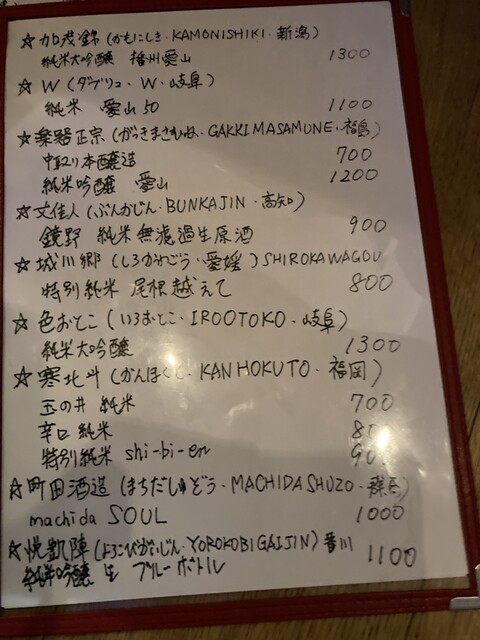 ☆加茂錦(かもにしき・KAMONISHIKI・新潟)
純米大吟醸 播州愛山 1300
☆W(ダブリュー・W・岐阜)
純米 愛山50 1100
☆楽器正宗(がっきまさむね・GAKKIMASAMUNE・福島)
中取り本醸造 700
純米吟醸 愛山 1200
☆文佳人(ぶんかじん・BUNKAJIN・高知)
鏡野 純米無濾過生原酒 900
☆城川郷(しろかわごう・愛媛)SHIROKAWAGOU
特別純米 尾根越えて 800
☆色おとこ(いろおとこ・IROOTOKO・岐阜)
純米大吟醸 1300
☆寒北斗(かんほくと・KANHOKUTO・福岡)
玉の井 純米 700
辛口純米
特別純米 shi-bi-en
☆町田酒造(まちだしゅぞう・MACHIDASHUZO・群馬)
machida SOUL 1000
☆悦凱陣(よろこびがいじん・YOROKOBIGAIJIN)香川
純米吟醸 生 ブルーボトル 1100